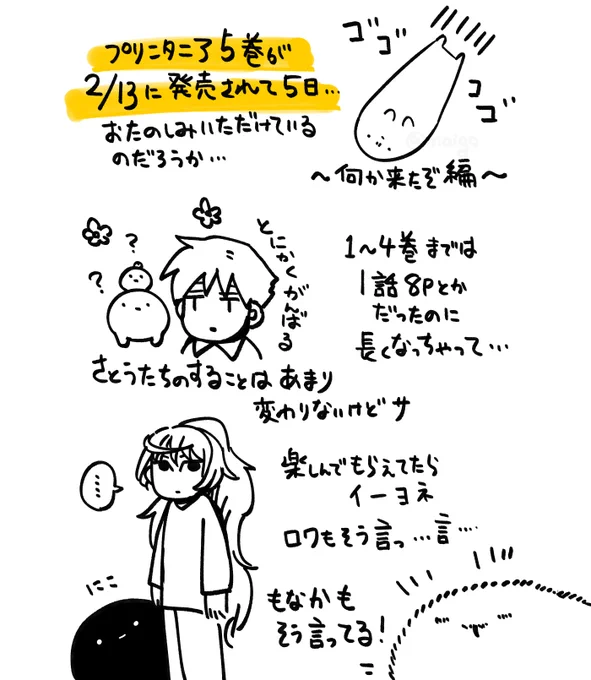 プリンタニア5巻が
2/13に発売されて5日…
おたのしみいただけている
のだろうか…
ゴゴ
ゴゴ
～何か来たぞ編～
？
？
とにかくがんばる
1～4巻までは
1話8Pとか
だったのに
長くなっちゃって…
さとうたちのすることはあまり
変わりないけどサ
楽しんでもらえてたら
イーヨネ
ロワもそう言っ…言…
……
にこ
もなかも
そう言ってる!